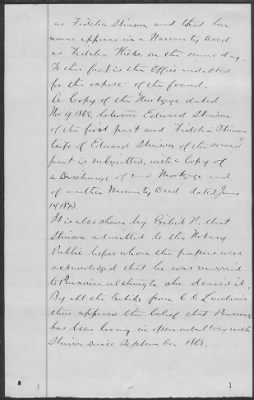 as Fidelia Stinson and that her
name appears in a Warranty Deed
as Fidelia Hicks on the same day.
To this fact is the Office indebted
for the expose of the fraud.
A Copy of the Mortgage dated
Nov 9, 1868, between Edward Stinson
of the first part and "Fidelia Stinson
wife of Edward Stinson of the second
part is submitted, with a Copy of
a Discharge of said Mortgage and
of another Warranty Deed dated June
14, 1870
It is also shown by Exhibit H, that
Stinson admitted to the Notary
Public before whom the papers were
acknowledged that he was married
to although she denies it.
By all the Exhibits from
there appears the belief that
has been living in open adultery with
Stinson since September 1868.